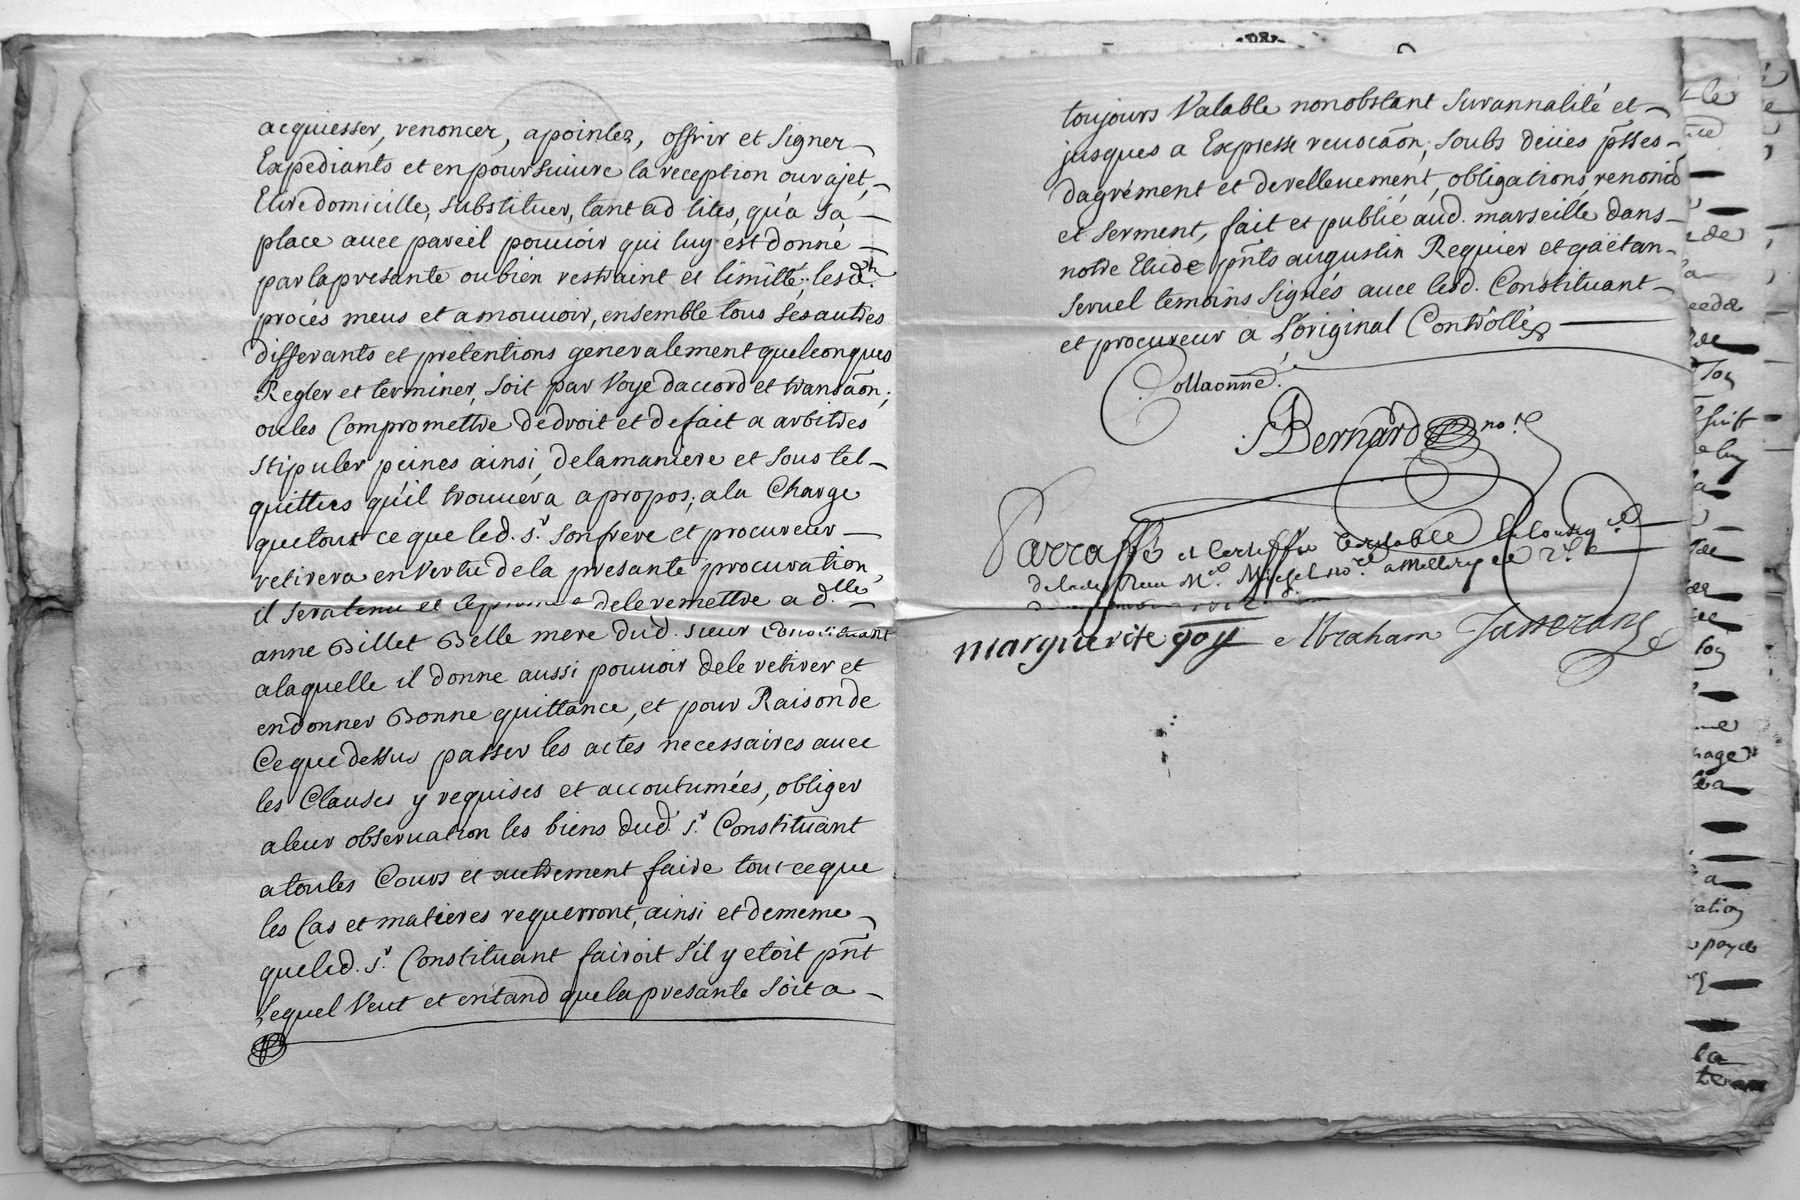 acquiesser, renoncer, apointer, offrir et signer
Expediants et en poursuivre la reception ou rajet,
Elire domicille, substituer, tant ad lites, qu'a sa
place avec pareil pouvoir qui luy est donné
par la presante ou bien restraint et limitté; les d.ts
procés meus et a mouvoir, ensemble tous ses autres
differants et pretentions generalement quelconques
Regler et terminer, soit par voye daccord et transãon;
ou les Compromettre de droit et de fait a arbitres
stipuler peines ainsi, de la maniere et sous tel
quittes qu'il trouvera a propos; a la Charge
que tout ce que led. Sr. son frere et procureur
retirera en vertu de la presante procuration,
il sera tenu et de le remettre a d.lle
anne Billet Belle mere dud. sieur Constituant
a laquelle il donne aussi pouvoir de le retirer et
en donner Bonne quittance, et pour Raison de
Ce que dessus passer les actes necessaires avec
les Clauses y requises et accoutumées, obliger
a leur observation les biens dud. Sr. Constituant
a toutes Cours et autrement faire tout ce que
les Cas et matieres requerront, ainsi et de meme
que led. Sr. Constituant fairoit s'il y etoit pñt
Lequel Veut et entand que la presante soit a
toujours Valable nonobstant surannalité et
jusques a Expresse revocãon; soubs deües pr̃sses
dagrément et de rellevement, obligations, renonc̃
et serment, fait et publié aud. marseille dans
notre Etude pñts augustin Requier et gaëtan
servel temoins signés avec lesd. Constituant
et procureur a L'original Contrôllé
Collaonné.
Bernard no.re
Parraffé et certiffié veritable
Mre. Michel no.re
marguerite goy Abraham Jasserand